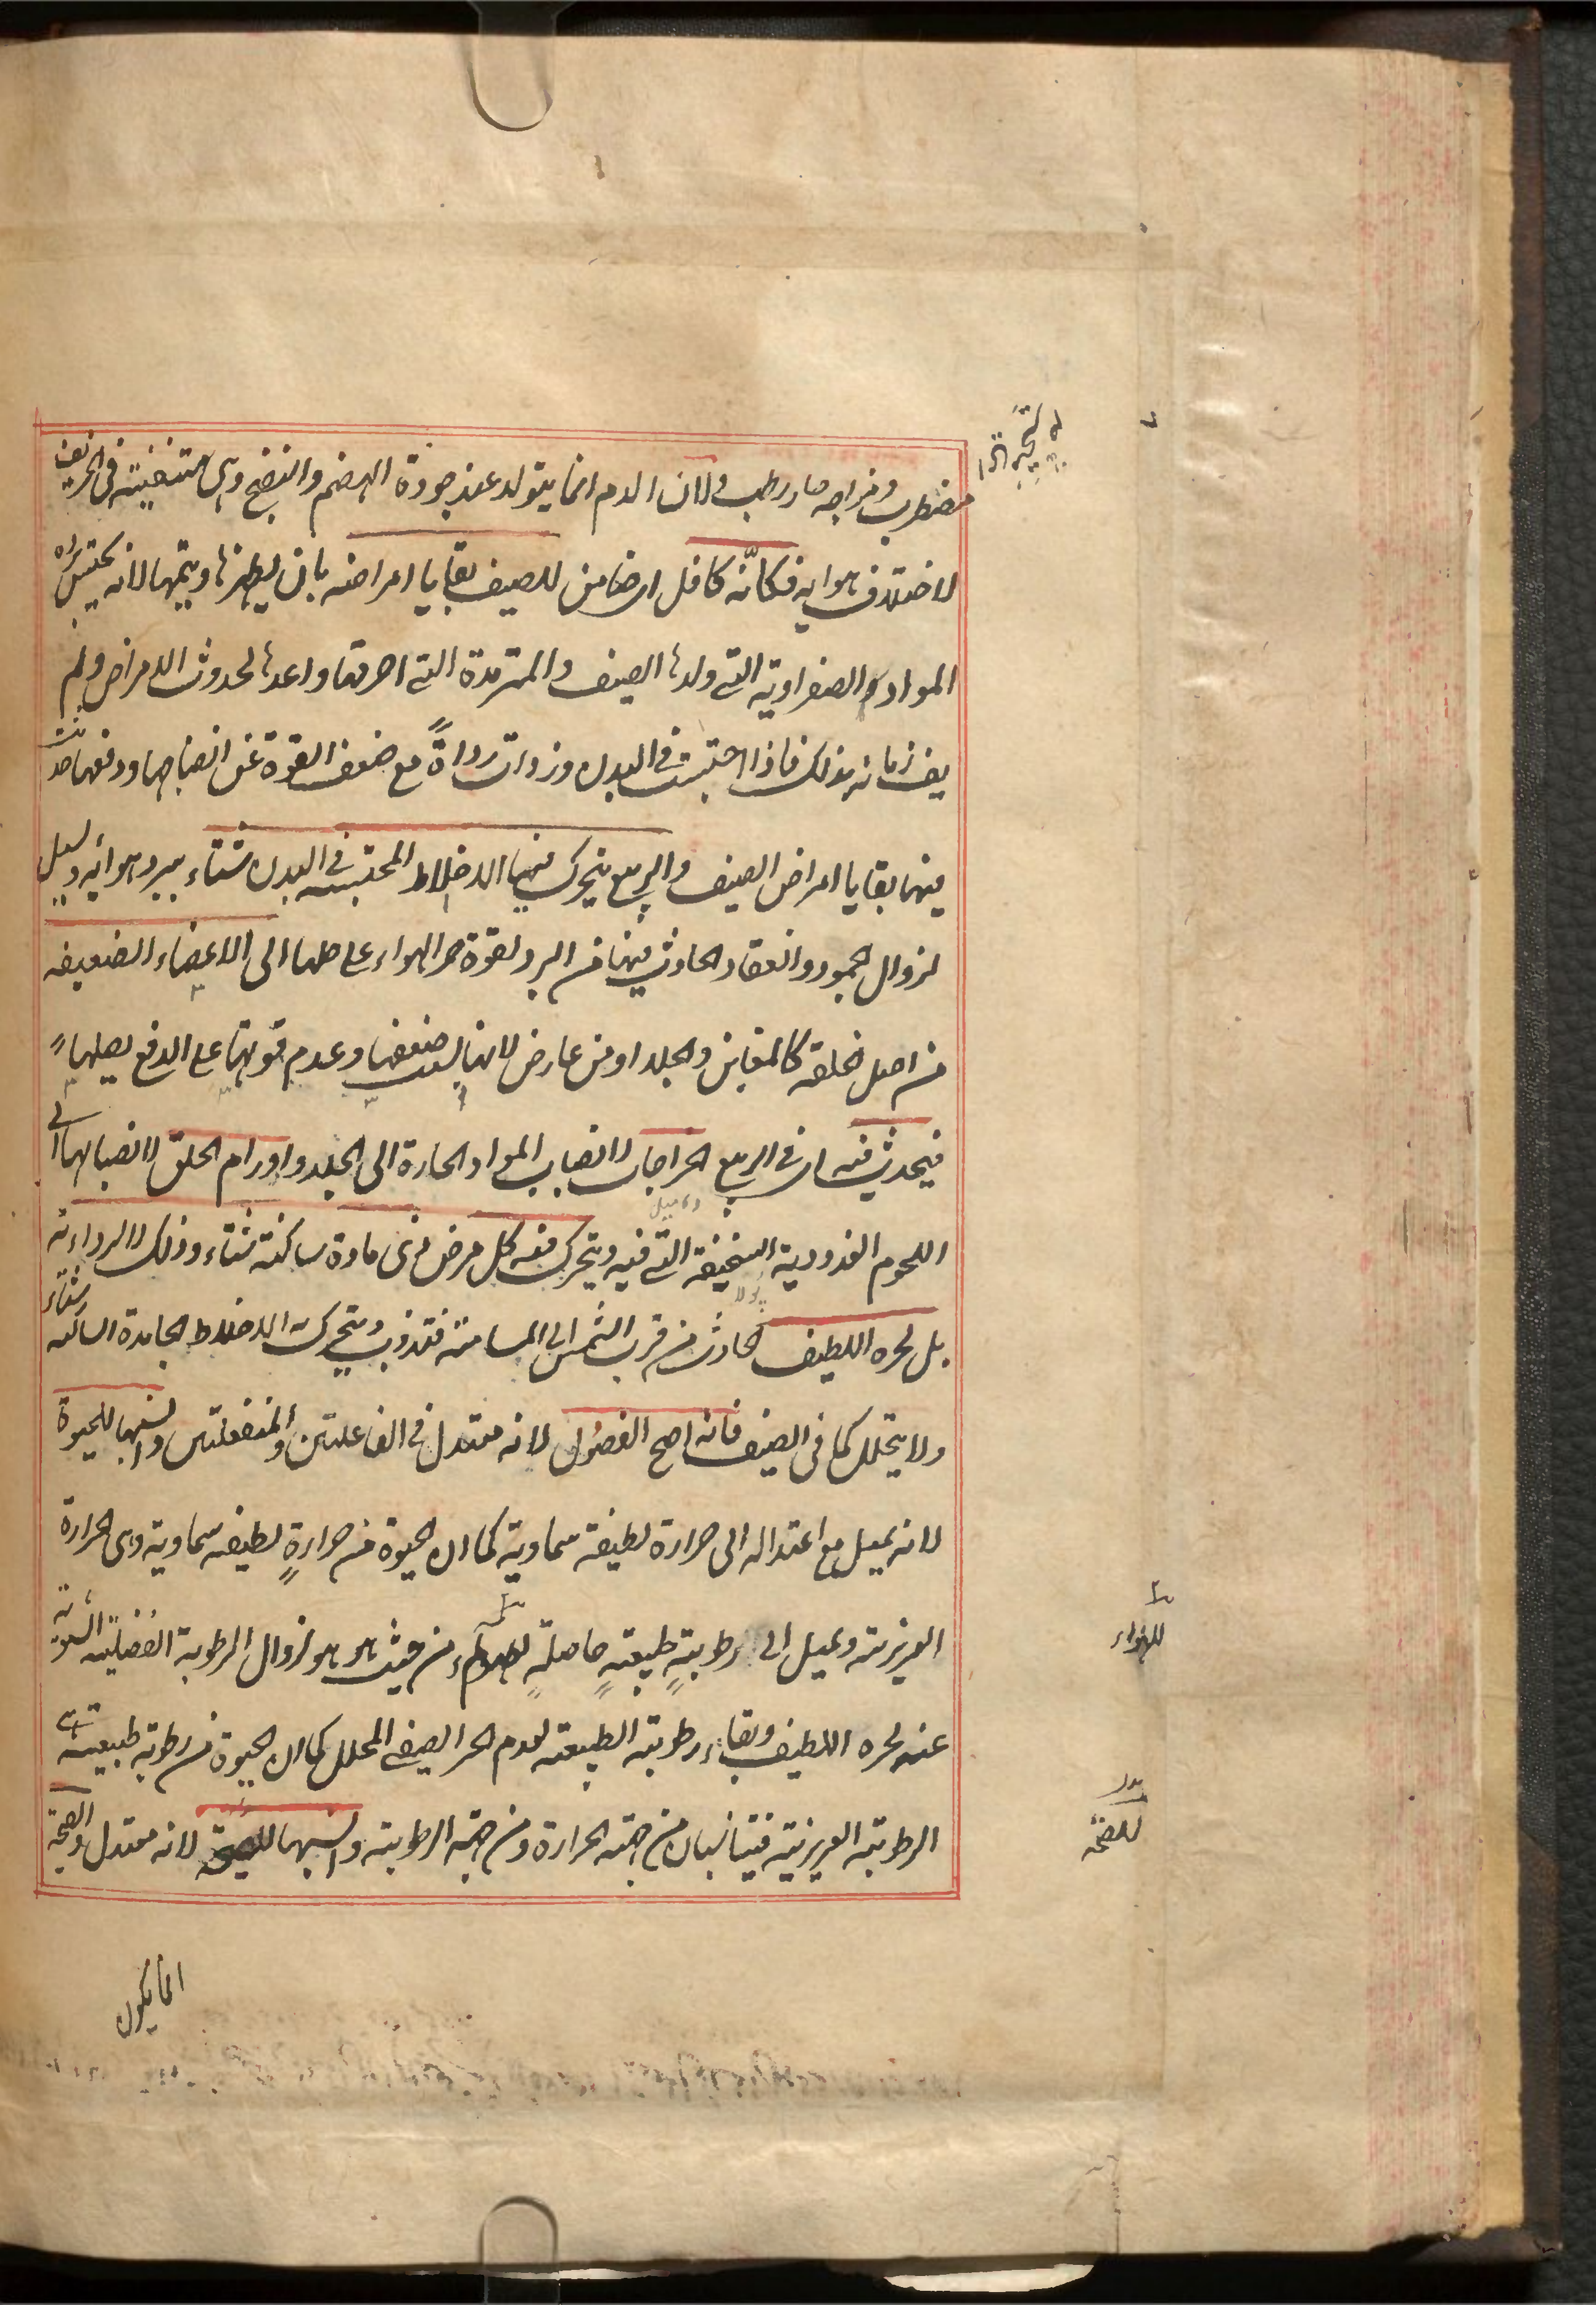 مضطرب ومزاجه حار رطب ولان الدم انما يتولد عند جودة الهضم والنضج وهى منتفية فى الخريف
لاختلاف هوايه فكانّه كافل اى ضامن للصيف بقايا امراضه بان يظهرها ويتمها لانه يحتبس
المواد الصفراوية التى ولدها الصيف والمترمدة التى احرقها واعدها لحدوث الامراض ولم
يف زمانه بذلك فاذا احتبست فى البدن وزدات رداةً مع ضعف القوة عن انضاجها ودفعها حدثت
منها بقايا امراض الصيف والربيع يتحرك فيها الاخلاط المحتبسة فى البدن شتاء ببرد هوائه وتسيل
لزوال الجمود وانعقاد الحادث فيها من البرد لقوة حر الهواء على حلها الى الاعضاء الضعيفه
من اصل الخلقه كالمغابن والجلد او من عارض لانها لسبب ضعفها وعدم قوتها على الدفع يصلها
فيحدث فيه اى فى الربيع الخراجات لانصباب المواد الحارة الى الجلد واورام الحلق لانصبابها الى
اللحوم الغددية السخيفة التى فيه ويتحرك فيه كل مرض ذى مادة ساكنة شتاء وذلك لا لرداءته
دماميل
اولا
بل لحره اللطيف الحادث من قرب الشمس الى المسامتة فتذوب ويتحرك به الاخلاط الجامدة الساكنه شتاء
ولا يتحلل كما فى الصيف فانه اصح الفصول لانه معتدل فى الفاعلتين والمنفعلتين وانسبها للحيوة
لانه يميل مع اعتداله الى حرارة لطيفة سماوية كما ان الحيوة من حرارةٍ لطيفه سماوية وهى الحرارة
الغريزية ويميل الى رطوبةٍ طبيعيةٍ حاصلةٍ من حيث هو هو لزوال الرطوبة الفضليه الشتوية
للهواء
عنه لحره اللطيف وبقاء رطوبته الطبيعيه لعدم الحر الصيفى المحلل كما ان الحيوة من رطوبة طبيعيه هى
الرطوبة الغريزية فيتناسبان من جهته الحرارة ومن جهة الرطوبة وانسبها للصحة لانه معتدل والصحة
للصحة
انما يكون